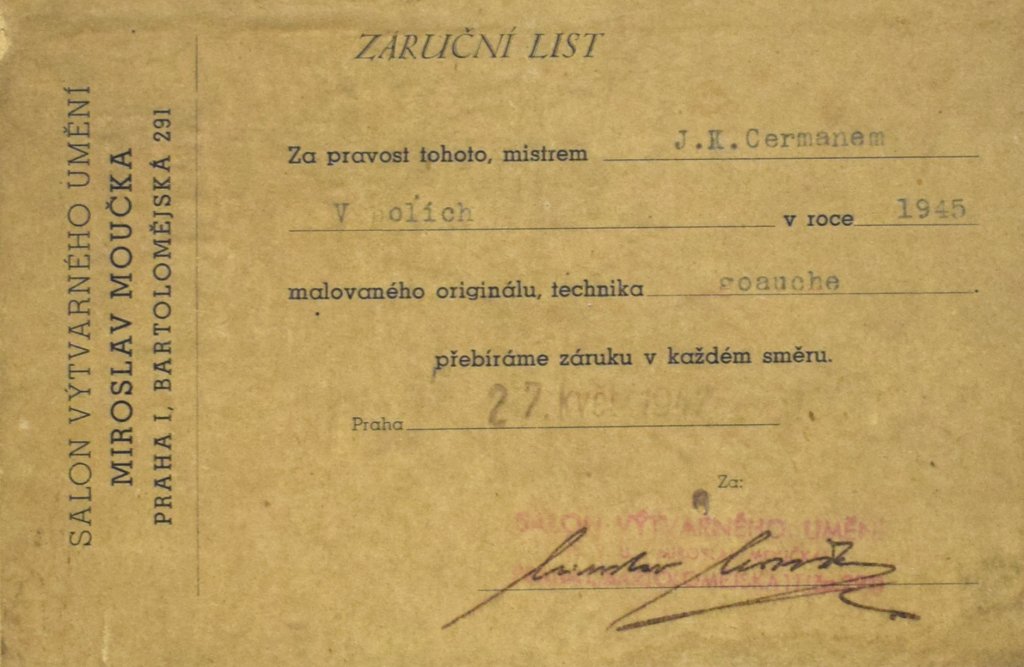 ZÁRUČNÍ LIST
SALON VÝTVARNÉHO UMĚNÍ
MIROSLAV MOUČKA
PRAHA I, BARTOLOMĚJSKÁ 291
Za pravost tohoto, mistrem J.K.Cermanem
V polích v roce 1945
malovaného originálu, technika goauche.
přebíráme záruku v každém směru.
Praha 27. KVĚ 1947
Za:
SALON VÝTVARNÉHO UMĚNÍ